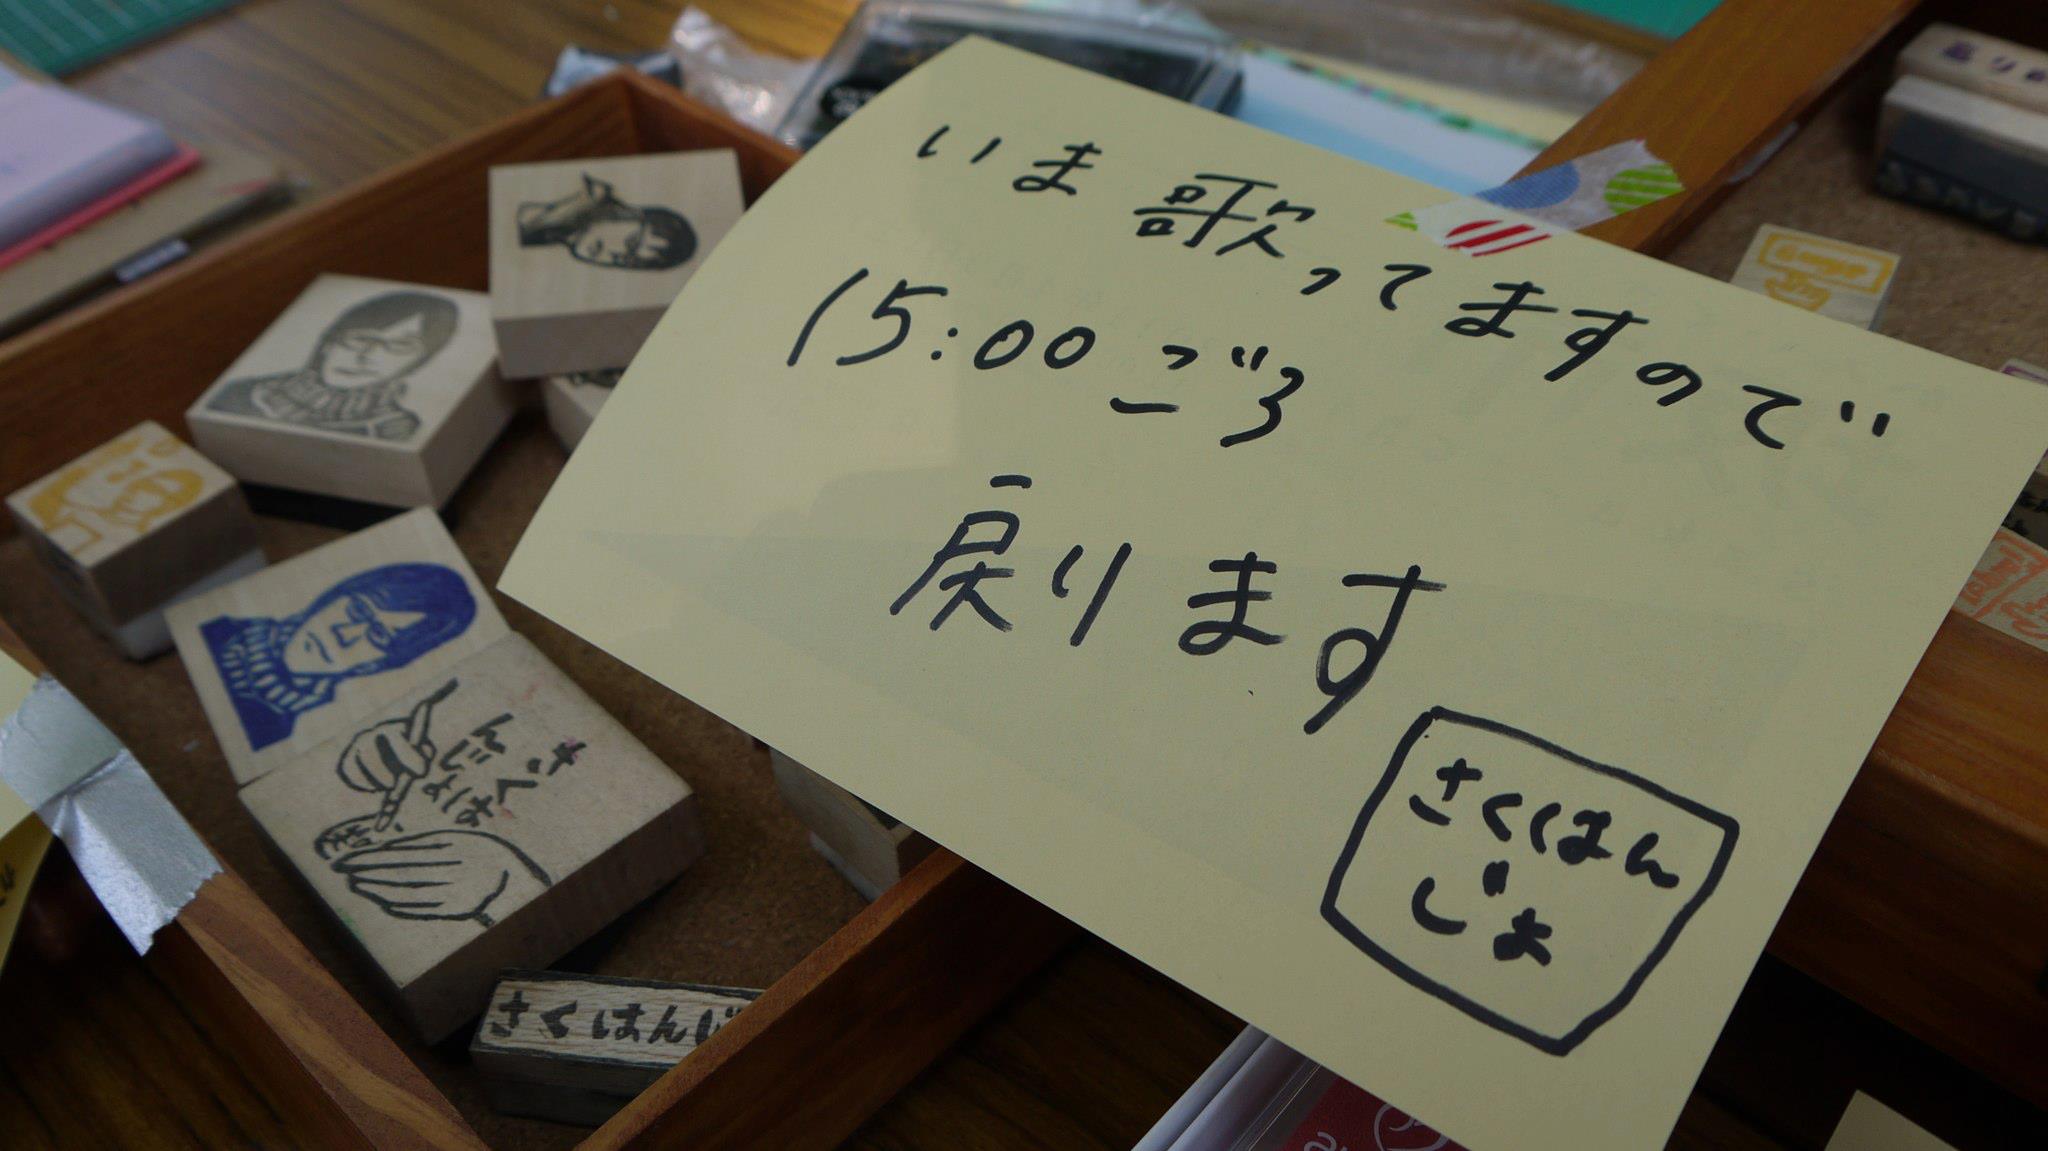 いま歌ってますので
15:00ごろ
戻ります
さくはん
じょ
さく
はんじょ
さくはんじ